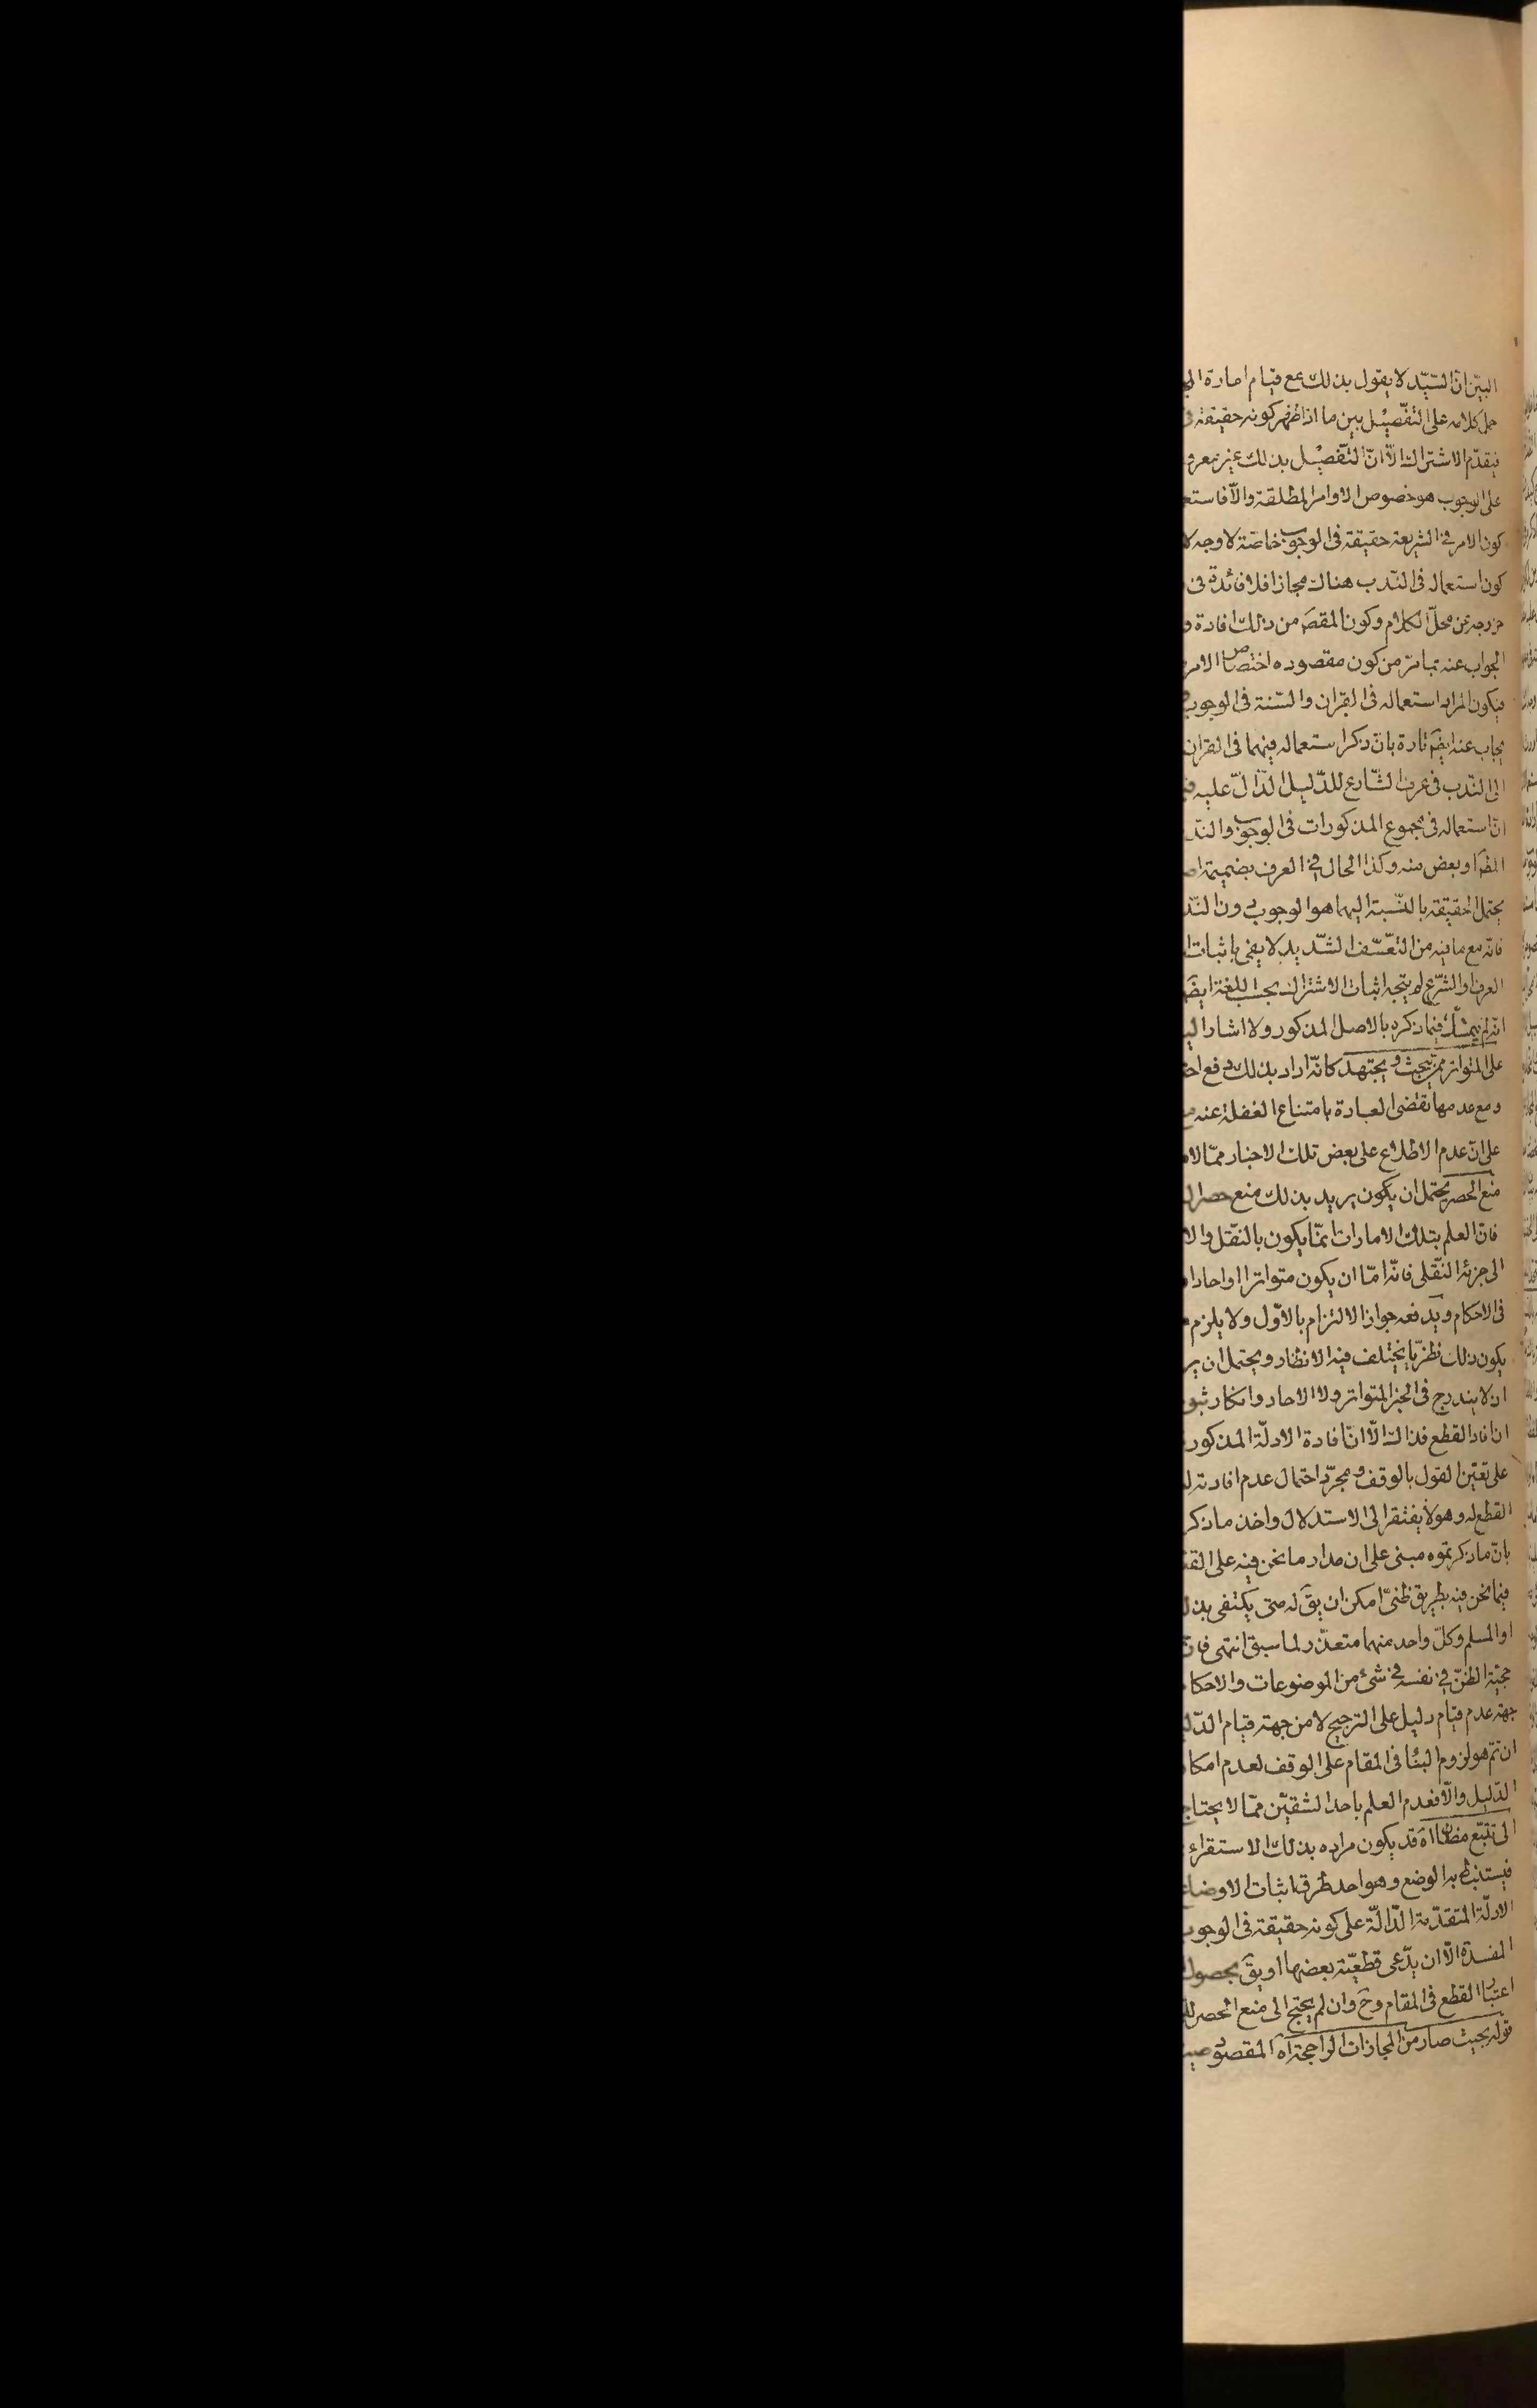 البيّن انّ السّيّد لا يقول بذلك مع قيام امارة
حمل كلامه على التفصيل بين ما اذا ظهر كونه حقيقة
فيقدّم الاشتراك الّا انّ التّفصيل بذلك غير
على الوجوب هو خصوص الاوامر المطلقة والّا
كون الامر في الشريعة حقيقة في الوجوب خاصّة لا وجه
كون استعماله في النّدب هناك مجازا فلا فائدة في
خروجه عن محلّ الكلام وكون المقصَ من ذلك افادة
الجواب عنه بما مرّ من كون مقصوده اختصاص الامر
فيكون المراد استعماله في القران والسّنة في الوجوب
يجاب عنه ايضَ تارة بانّ ذكر استعماله فيهما في القران
الى النّدب في عرف الشّارع للدّليل الدّالّ عليه
انّ استعماله في مجموع المذكورات في الوجوب
او بعض منه وكذا الحال في العرف بضميمة
يحتمل الحقيقة بالنّسبة اليهما هو الوجوب دون
فانّه مع ما فيه من التعسّف الشّديد لا يفى باثبات
العرف او الشّرع لم يتجه اثبات الاشتراك بحسب اللغة ايضَ
انّه لم يتمسّك فيما ذكره بالاصل المذكور ولا اشار
على المتواتر ممّن يبحث ويجتهد كانّه اراد بذلك دفع
ومع عدمها تقضى العبارة بامتناع الغفلة عنه
على انّ عدم الاطلاع على بعض تلك الاخبار
منع الحصر يحتمل ان يكون يريد بذلك منع حصر
فانّ العلم بتلك الامارات انّما يكون بالنقل
الى جزئه النّقلى فانّه امّا ان يكون متواترا او احادا
في الاحكام ويدفعه جواز الالتزام بالاوّل ولا يلزم
يكون ذلك نظريّا يختلف فيه الانظار ويحتمل ان
ان لا يندرج في الخبر المتواتر ولا الاحاد وانكار
ان افاد القطع فذاك الّا انّ افادة الادلّة المذكور
على تعيّن القول بالوقف ومجرّد احتمال عدم افادته
القطع له وهو لا يفتقر الى الاستدلال واخذ ما ذكر
بانّ ما ذكرتموه مبنى على ان مدار ما نحن فيه على
فيما نحن فيه بطريق ظنّىّ امكن ان يقَ له متى يكتفى
او المسلم وكلّ واحد منهما متعذّر لما سبق انتهى
حجيّة الظنّ في نفسه في شئ من الموضوعات
جهة عدم قيام دليل على الترجيح لا من جهة قيام
ان تمّ هو لزوم البناء في المقام على الوقف لعدم
الدّليل والّا فعدم العلم باحد الشقيّن ممّا لا يحتاج
الى تتبّع مظانّ اه قد يكون مراده بذلك الاستقراء
فيستنبط به الوضع وهو احد طرق اثبات
الادلّة المتقدّمة الدّالّة على كونه حقيقة في الوجوب
المفسدة الّا ان يدّعى قطعيّة بعضها او يقَ بحصول
اعتبار القطع في المقام وحَ وان لم يحتج الى منع الحصر
قوله بحيث صار من المجازات الراجحة اه المقصود